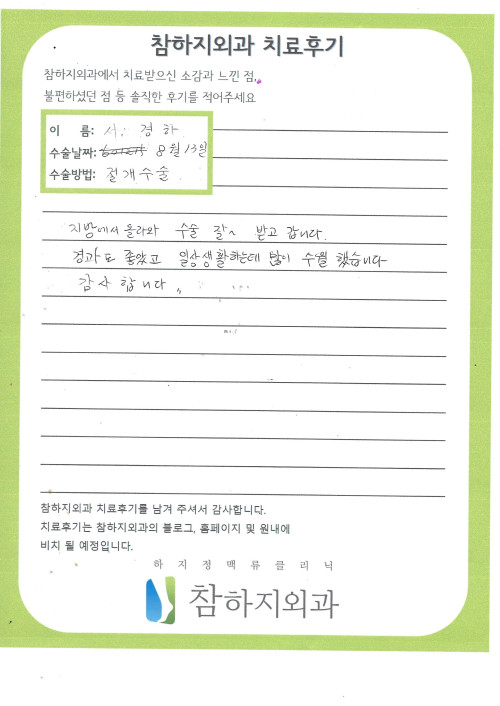 참하지외과 치료후기
참하지외과에서 치료받으신 소감과 느낀 점,
불편하셨던 점 등 솔직한 후기를 적어주세요
이 름: 서 경하
수술날짜: 8월 13일
수술방법: 절개수술
지방에서 올라와 수술 잘~ 받고 갑니다.
경과도 좋았고 일상생활하는데 많이 수월했습니다
감사합니다
참하지외과 치료후기를 남겨 주셔서 감사합니다.
치료후기는 참하지외과의 블로그, 홈페이지 및 원내에
비치 될 예정입니다.
하지정맥류클리닉
참하지외과